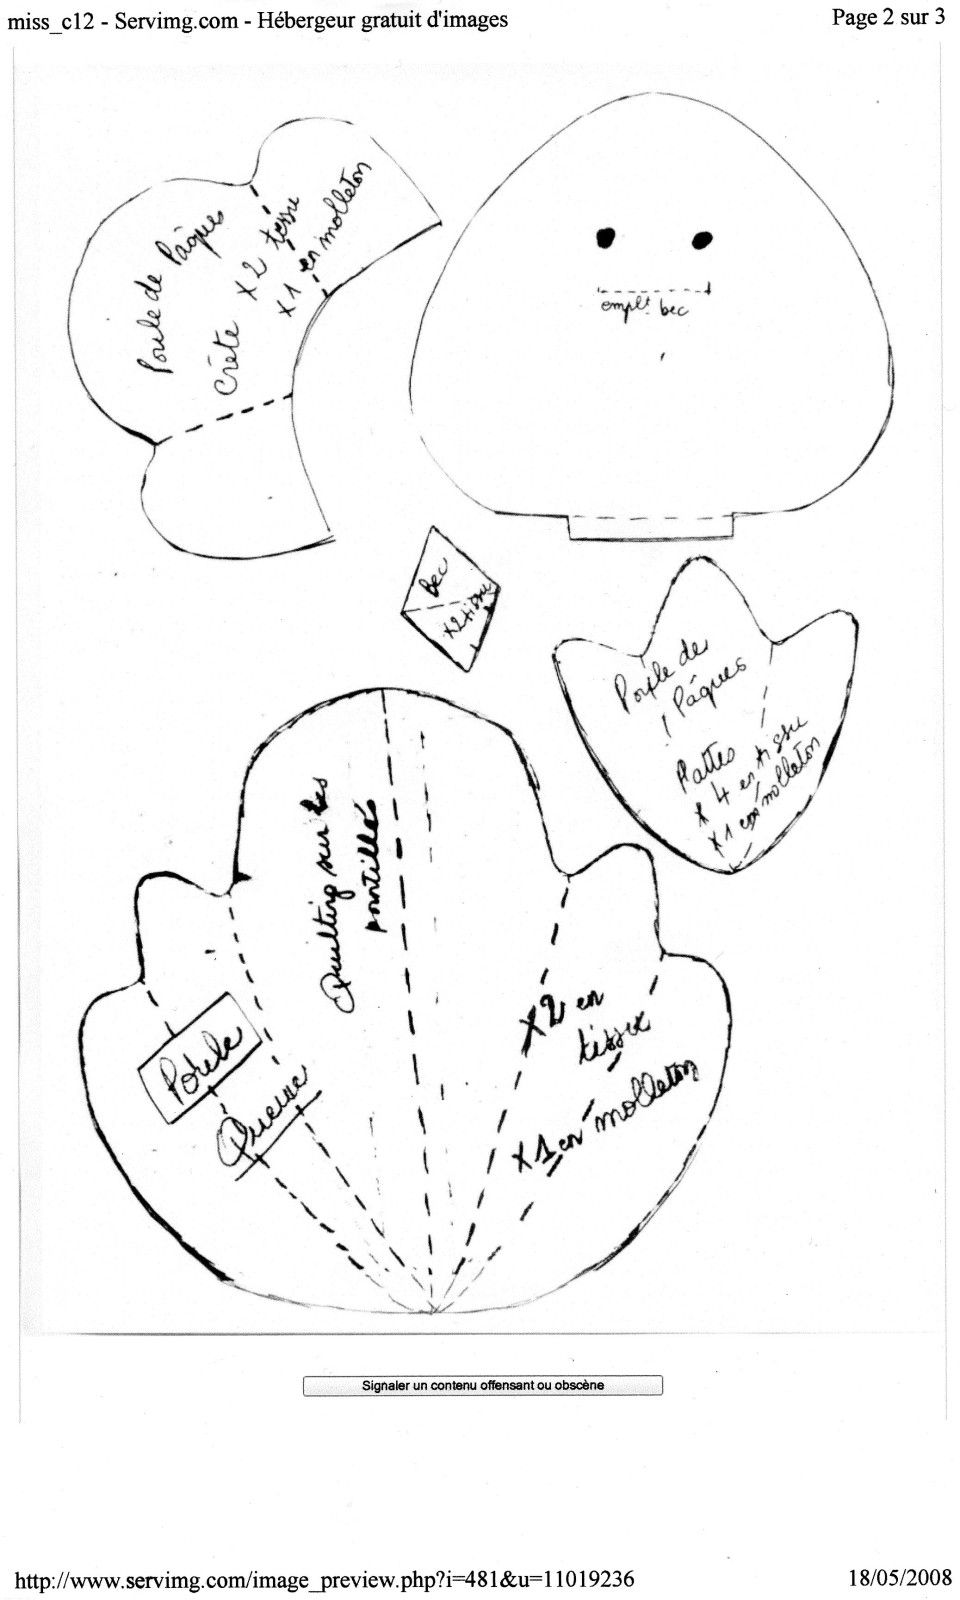 miss_c12 - Servimg.com - Hébergeur gratuit d'images
Page 2 sur 3
Poule de Pâques
Crête x2 tissu
x1 en molleton
emplt bec
bec
x2 tissu
Poule de
Pâques
Pattes
x 4 en tissu
x1 en molleton
Quilting sur les
pointillés
Poule
Queue
x2 en
tissu
x1 en molleton
Signaler un contenu offensant ou obscène
http://www.servimg.com/image_preview.php?i=481&u=11019236
18/05/2008